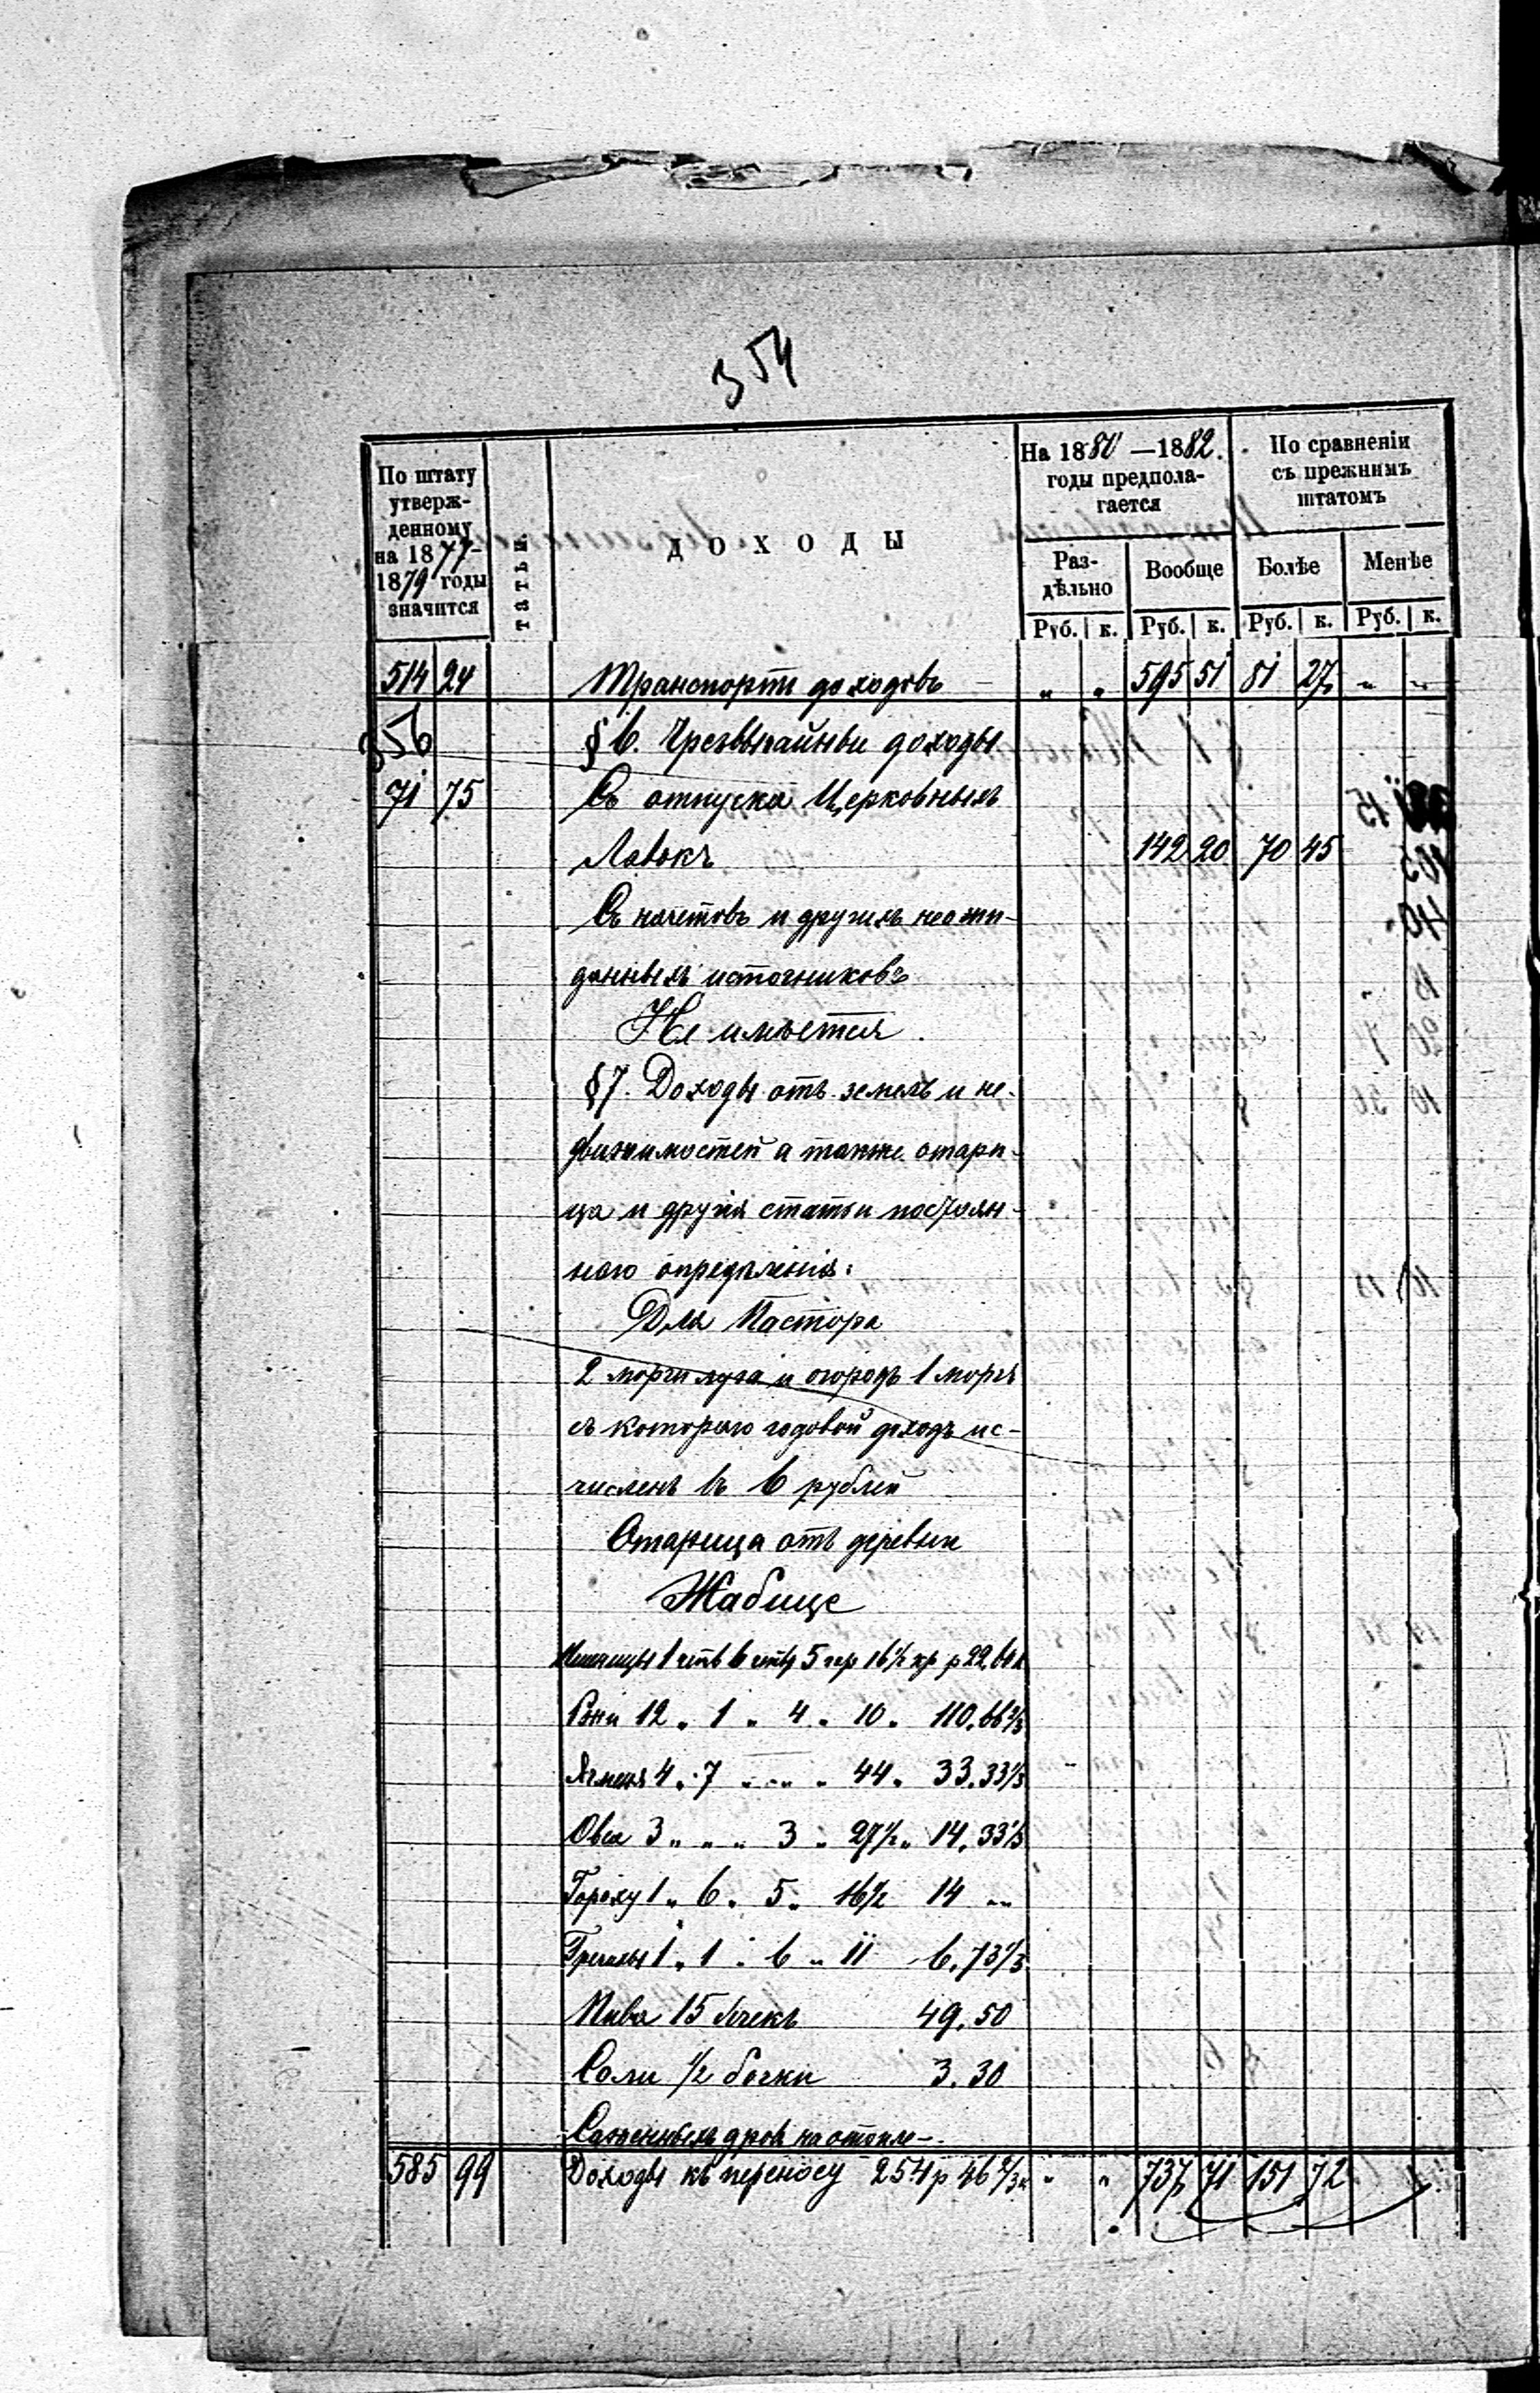 354
По штату утверж-денному на 1877-1879 годы значится
татьи.
ДОХОДЫ
На 1880—1882. годы предпола-гается
По сравненіи съ прежнимъ штатомъ
Раз-дѣльно
Вообще
Болѣе
Менѣе
Руб. к. Руб. к. Руб. к. Руб. к.
514 24 Транспортъ доходовъ — „ „ 595 51 81 27 „ „
356 § 6. Чрезвычайные доходы
71 75 Съ отпуска Церковныхъ
Лавокъ 142 20 70 45
Съ начетовъ и другихъ неожи-
данныхъ источниковъ
Не имѣется.
§ 7. Доходы отъ земель и не-
движимостей а также отары-
ца и другія статьи постоян-
наго опредѣленія:
Для Пастора
2 морги луга и огородъ 1 моргъ
съ котораго годовой доходъ ис-
численъ въ 6 рублей
Отарица отъ деревни
Жабице
Пшеницы 1 чтв 6 чтв 5 гар 16½ кр р 22,61
Ржи 12 „ 1 „ 4 „ 10 „ 110.66⅔
Ячменя 4 „ 7 „ „ „ 44 „ 33.33⅓
Овса 3 „ „ „ 3 „ 27½ „ 14.33⅓
Гороху 1 „ 6 „ 5 „ 16½ 14 „
Гречихи 1 „ 1 „ 6 „ 11 6.73⅓
Пива 15 бочекъ 49.50
Соли ½ бочки 3.30
Саженныхъ дровъ на отопле-
585 99 Доходы къ переносу 254 р 46⅔ к „ „ 737 71 151 72